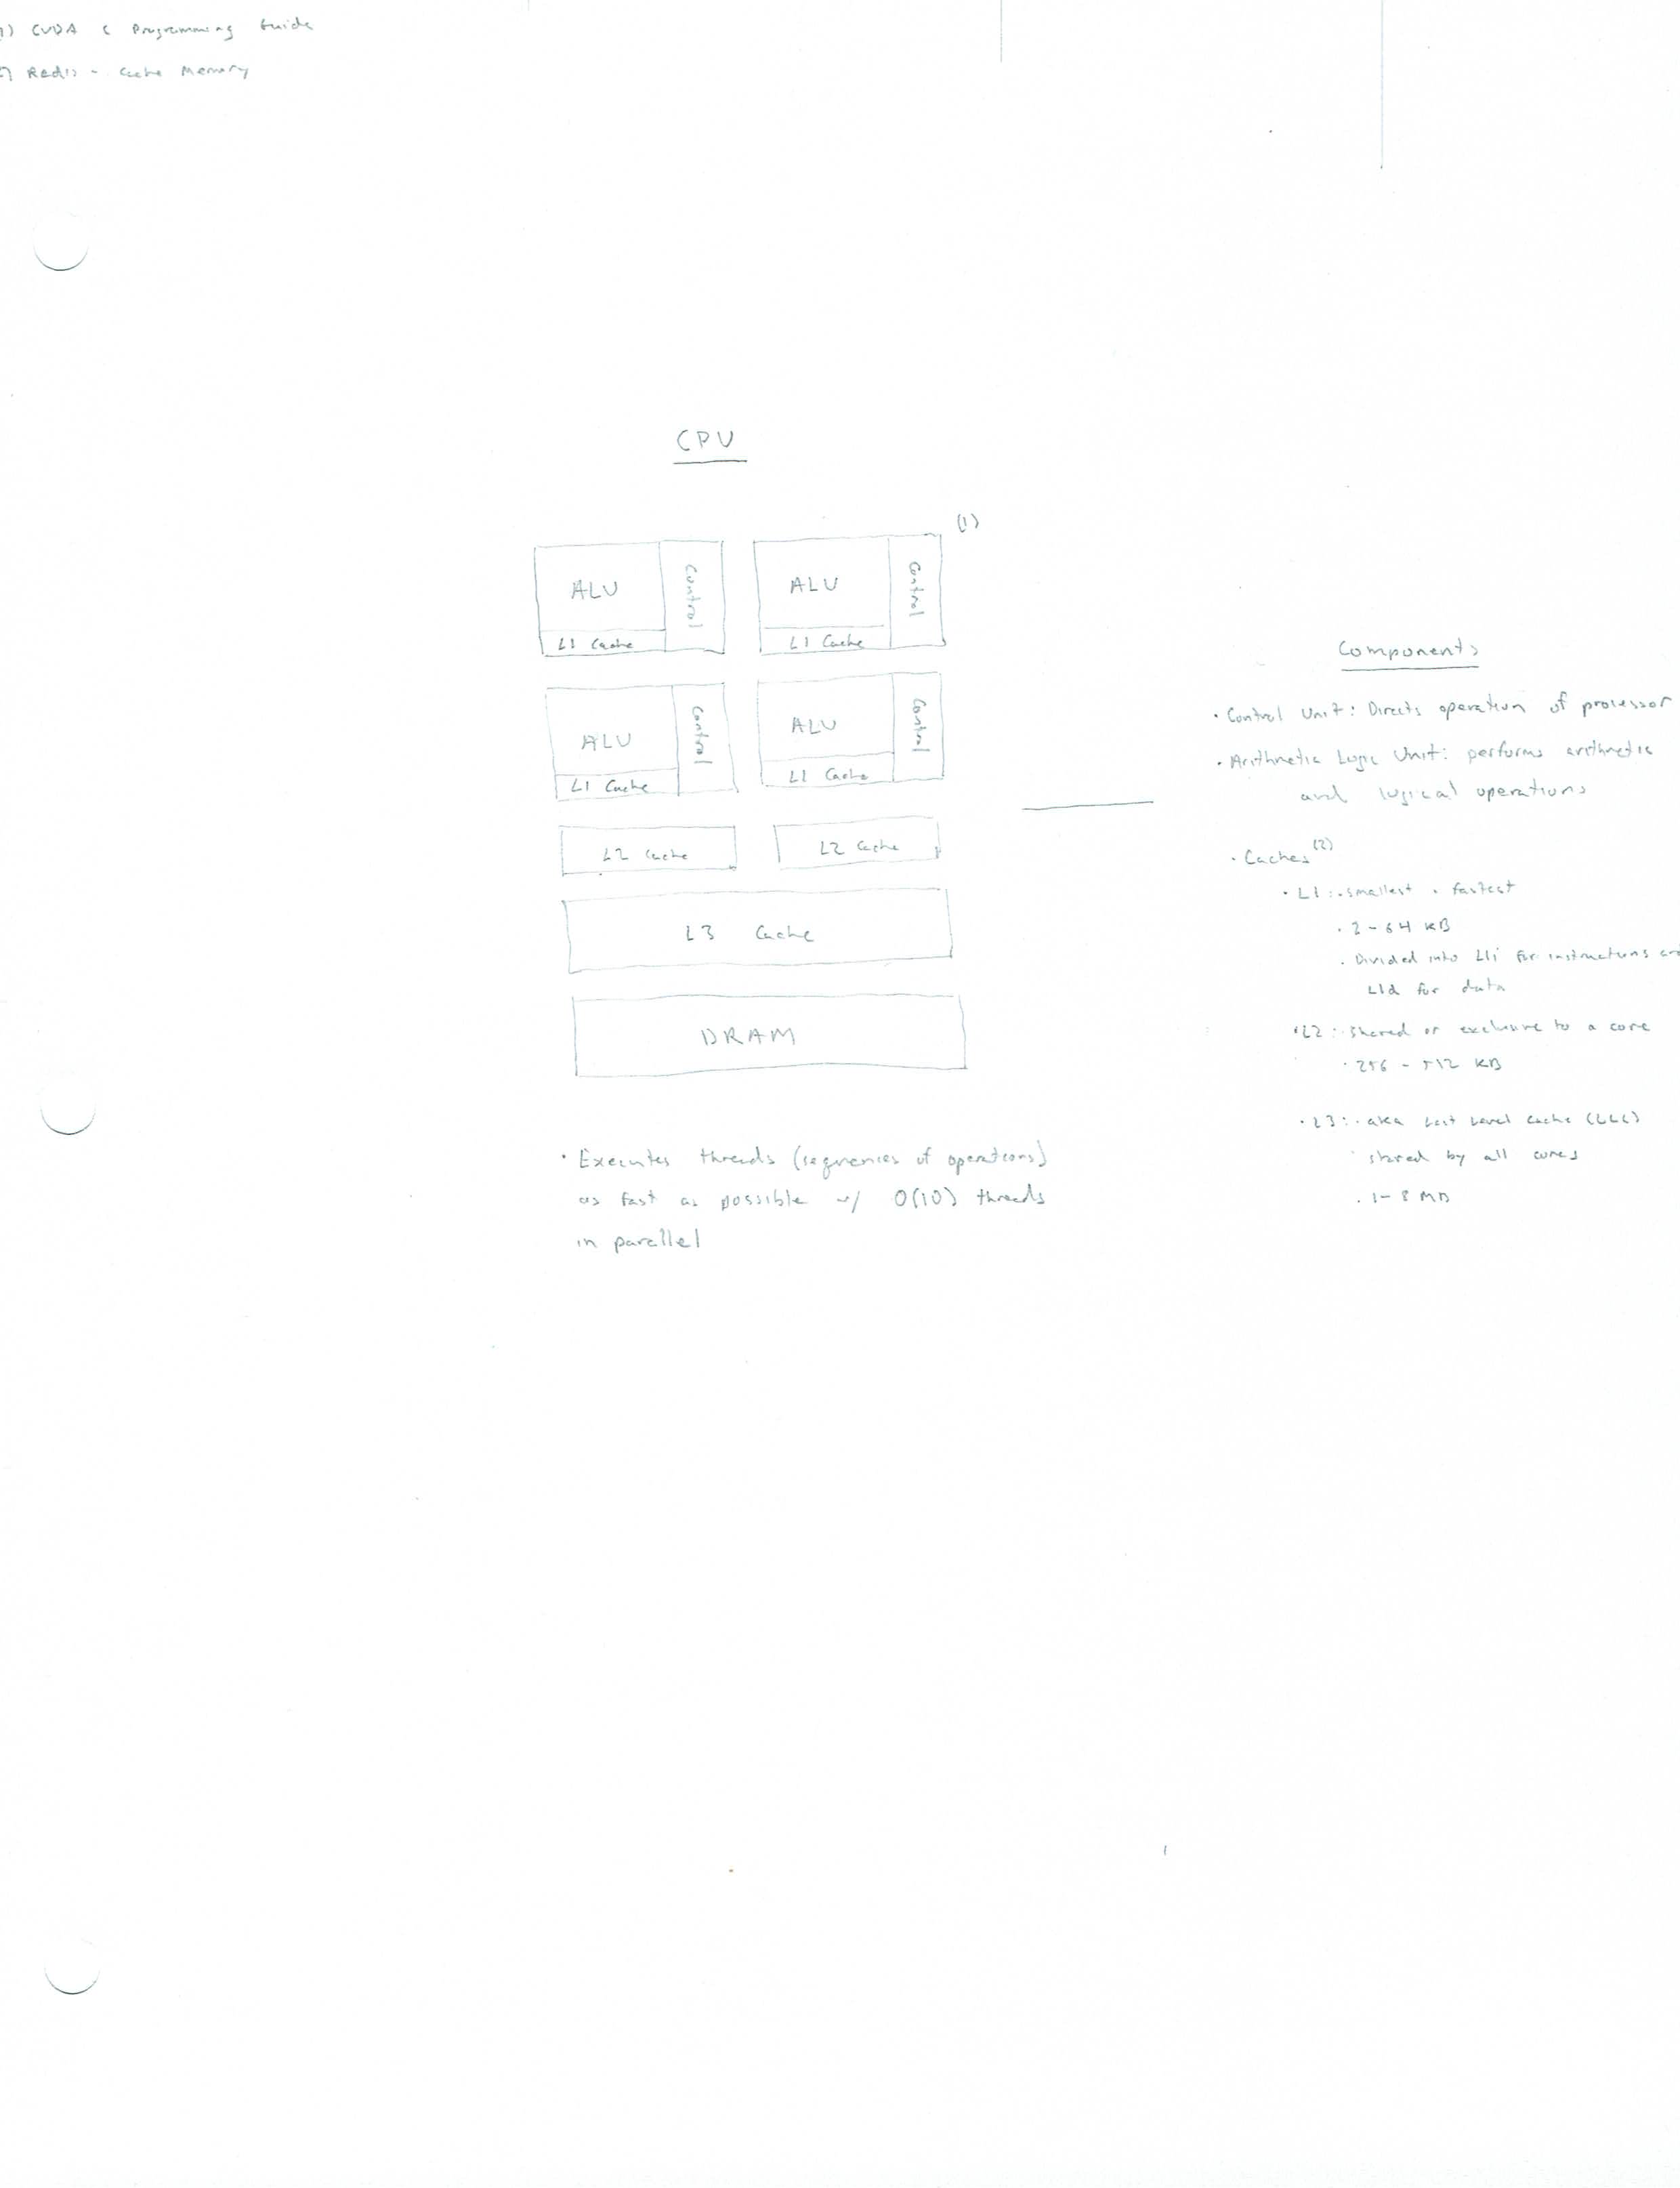 1) CUDA C Programming Guide
2) Redis - Cache Memory
CPU
(1)
ALU
Control
L1 Cache
ALU
Control
L1 Cache
ALU
Control
L1 Cache
ALU
Control
L1 Cache
L2 Cache
L2 Cache
L3 Cache
DRAM
· Executes threads (sequences of operations)
as fast as possible w/ O(10) threads
in parallel
Components
· Control Unit: Directs operation of processor
· Arithmetic Logic Unit: performs arithmetic
and logical operations
· Caches (2)
· L1: · smallest · fastest
· 2-64 KB
· Divided into L1i for instructions and
L1d for data
· L2: · shared or exclusive to a core
· 256 - 512 KB
· L3: · aka Last Level Cache (LLC)
· shared by all cores
· 1-8 MB